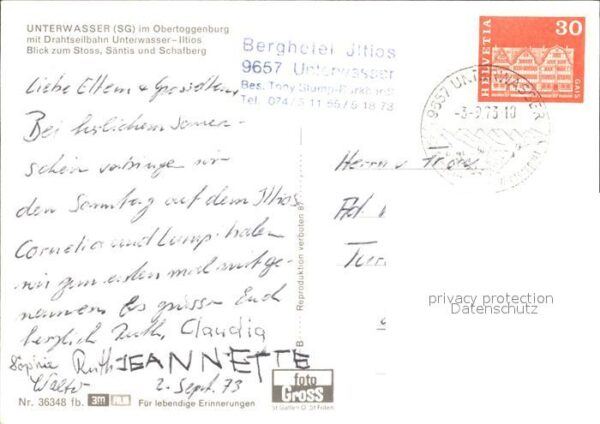 UNTERWASSER (SG) im Obertoggenburg
mit Drahtseilbahn Unterwasser–Iltios
Blick zum Stoss, Säntis und Schafberg
Berghotel Iltios
9657 Unterwasser
Bes. Tony
Tel. 074/5 11 55 / 5 18 73
HELVETIA
30
GAIS
9657 UNTERWASSER
-3.-9.73-10
Liebe Eltern + Grosseltern,
Bei herlichem Sonnen-
schein verbringen wir
den Sonntag auf dem Iltios
Cornelia und Lump haben
wir zum ersten mal mitge-
nommen Es grüssen Euch
herzlich Ruth, Claudia
Sophie Ruth JEANNETTE
Walter 2. Sept. 73
Herrn u.
Reproduktion verboten
privacy protection
Datenschutz
foto
Gross
St Gallen O. St Fiden
Nr. 36348 fb. 3M Für lebendige Erinnerungen